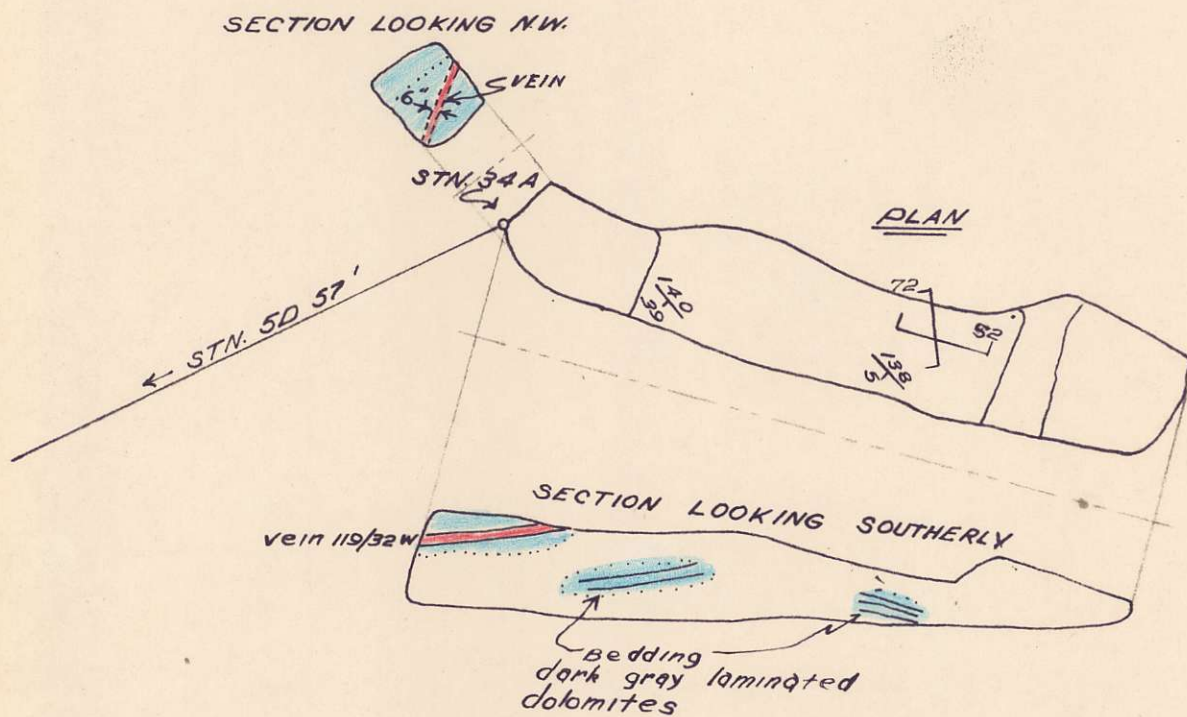 SECTION LOOKING N.W.
VEIN
.6"
STN. 34A
PLAN
STN. 5D 57'
140
39
72
52
138
5
SECTION LOOKING SOUTHERLY
vein 119/32W
Bedding
dark gray laminated
dolomites